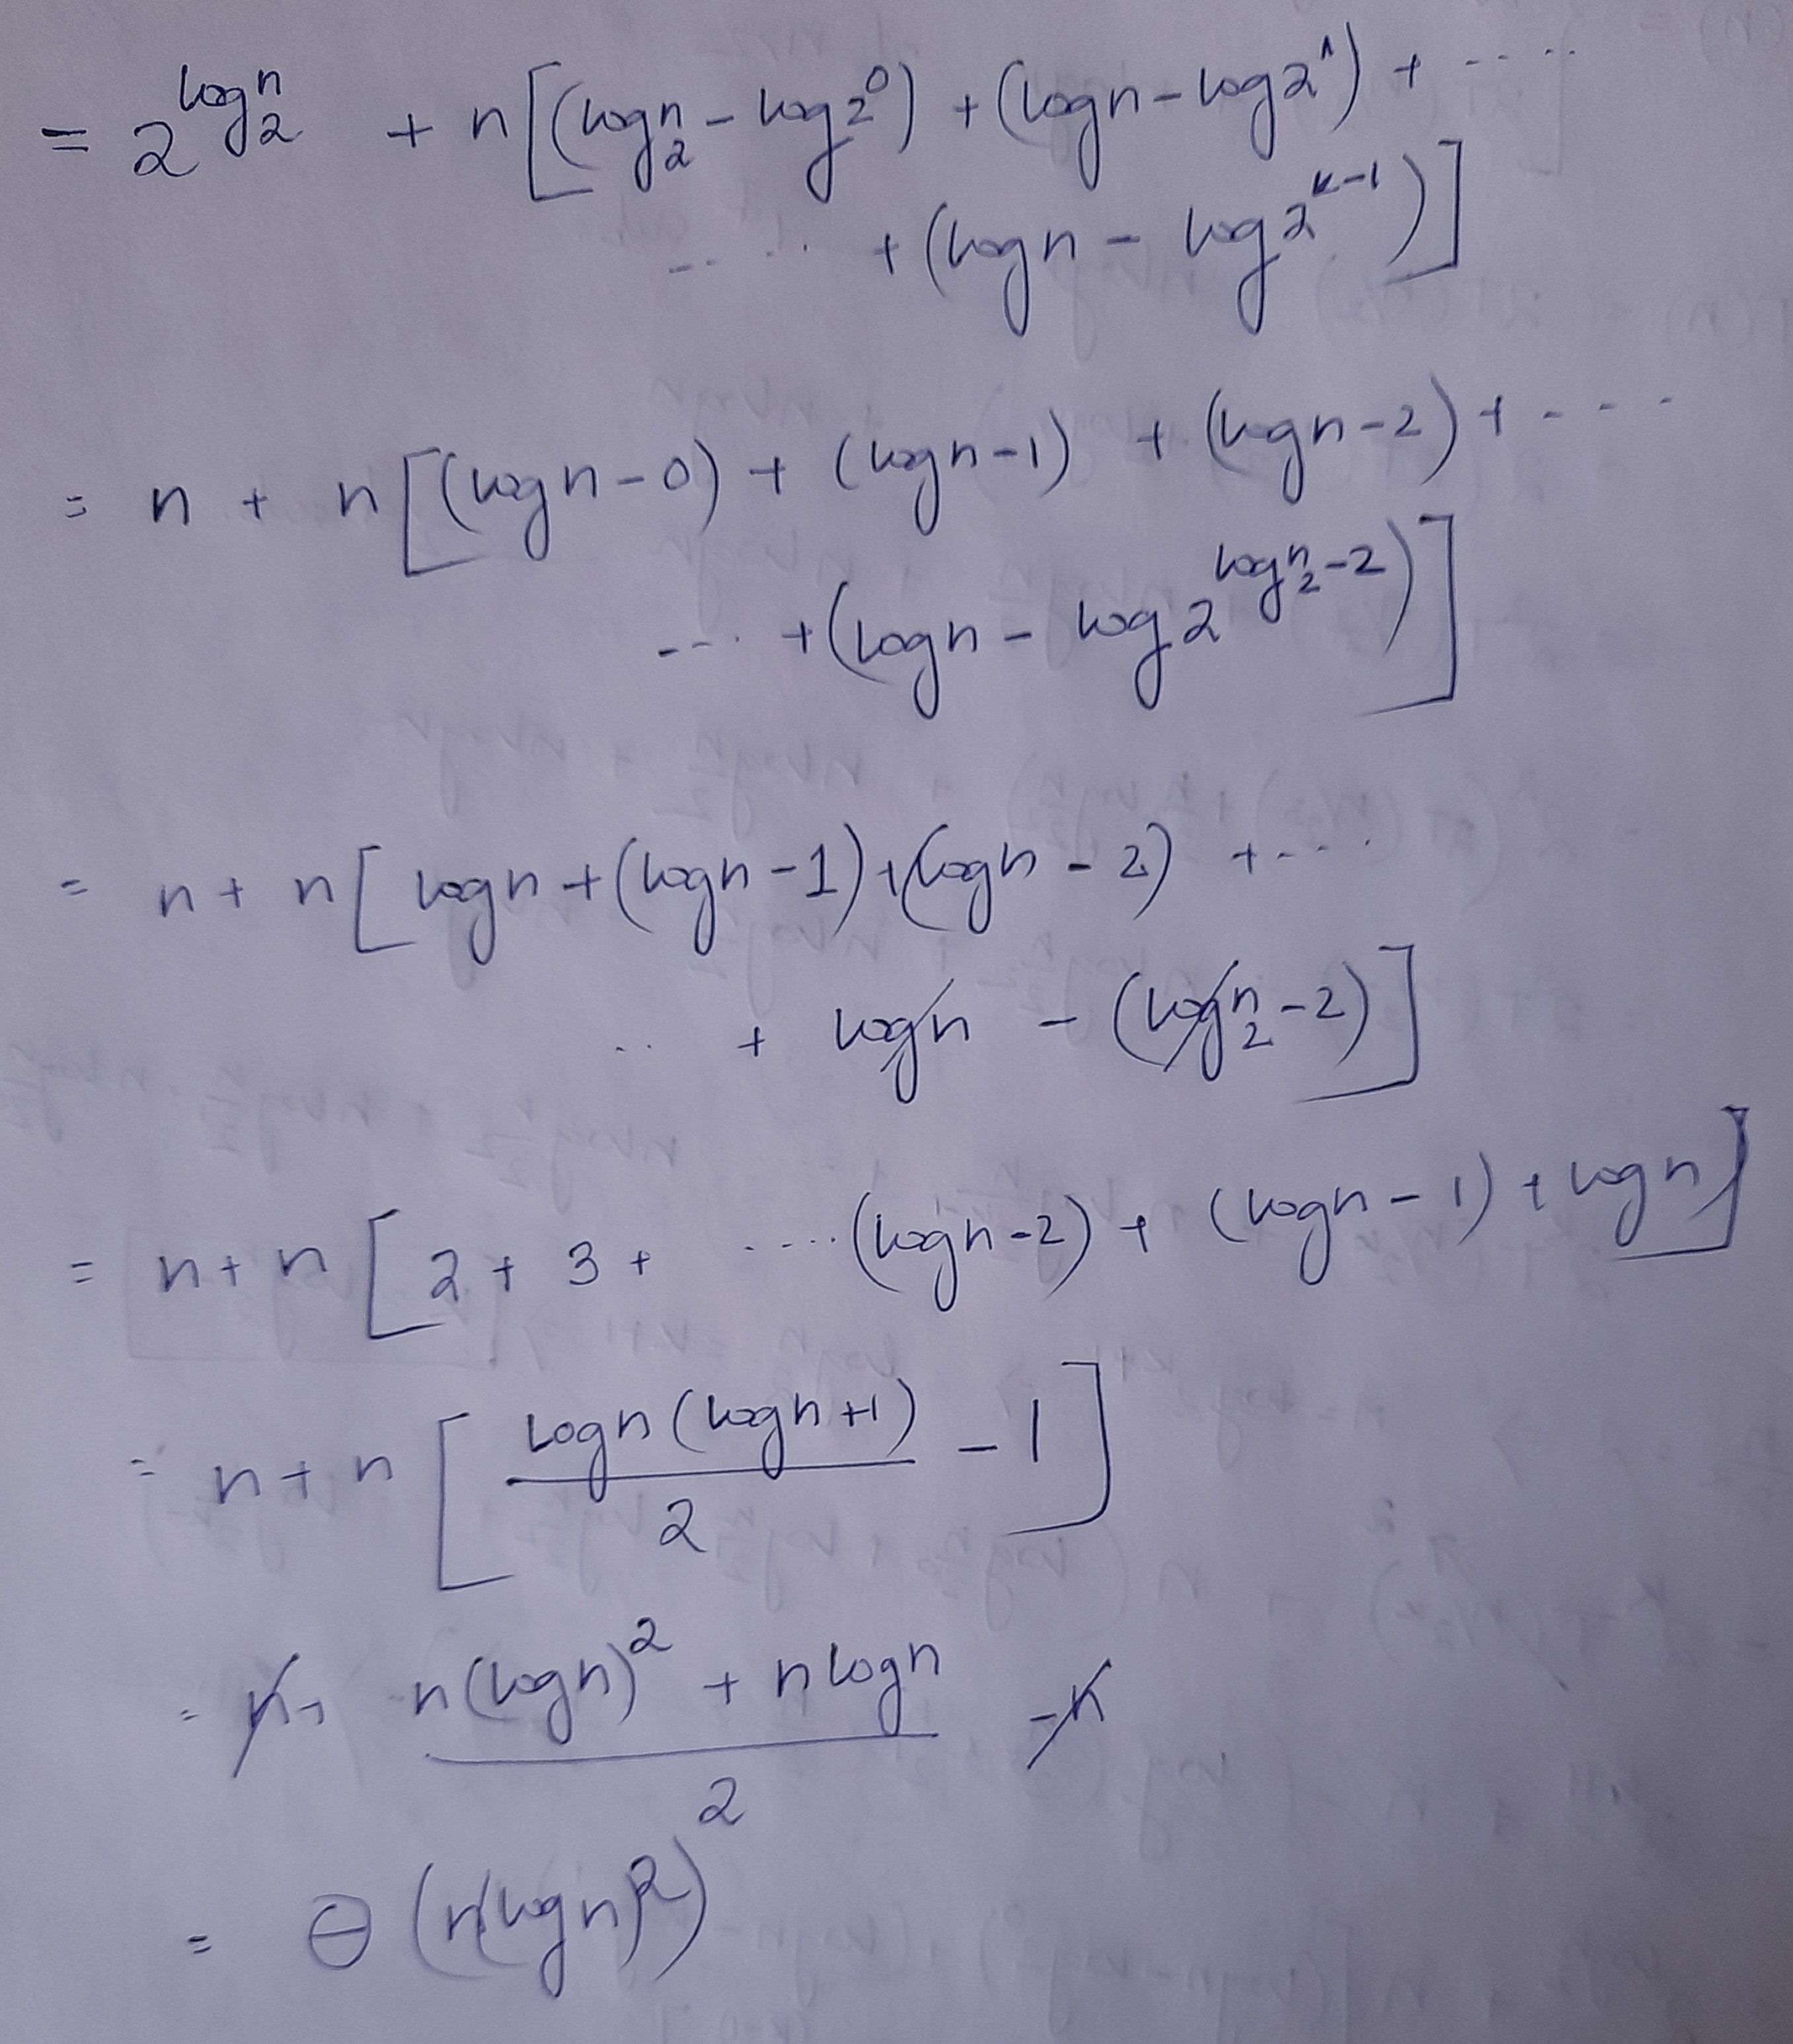 = 2^{log_2 n} + n[(log_2 n - log 2^0) + (log n - log 2^1) + .....
..... + (log n - log 2^{k-1})]
= n + n[(log n - 0) + (log n - 1) + (log n - 2) + ....
.... + (log n - log 2^{log_2 n - 2})]
= n + n[log n + (log n - 1) + (log n - 2) + ....
.. + log n - (log_2 n - 2)]
= n + n[2 + 3 + ..... (log n - 2) + (log n - 1) + log n]
= n + n[\frac{log n (log n + 1)}{2} - 1]
= n + \frac{n(log n)^2 + n log n}{2} - n
= θ(n(log n)^2)